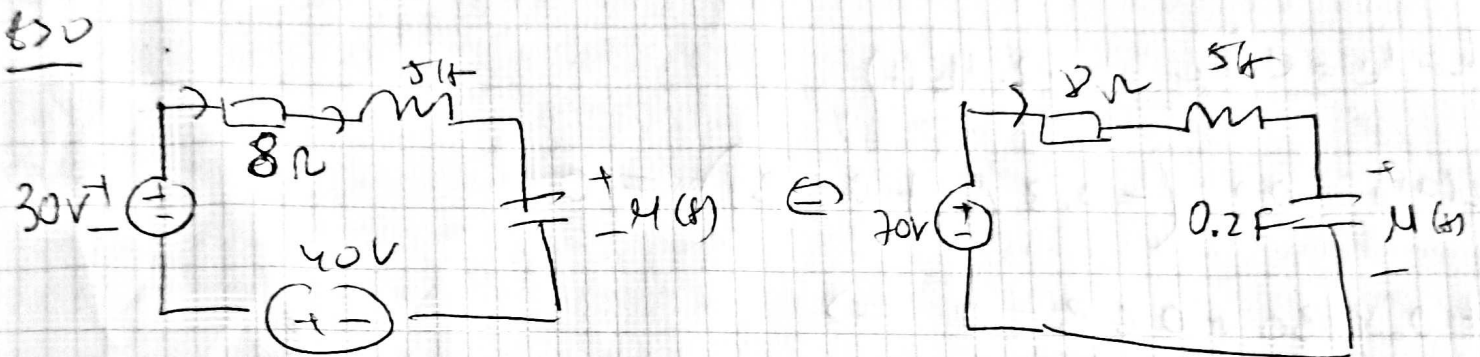 t>0
5H
8Ω
30V
+
-
+
-
u(t)
40V
+ -
⇔
8Ω
5H
70V
+
-
0.2F
+
u(t)
-